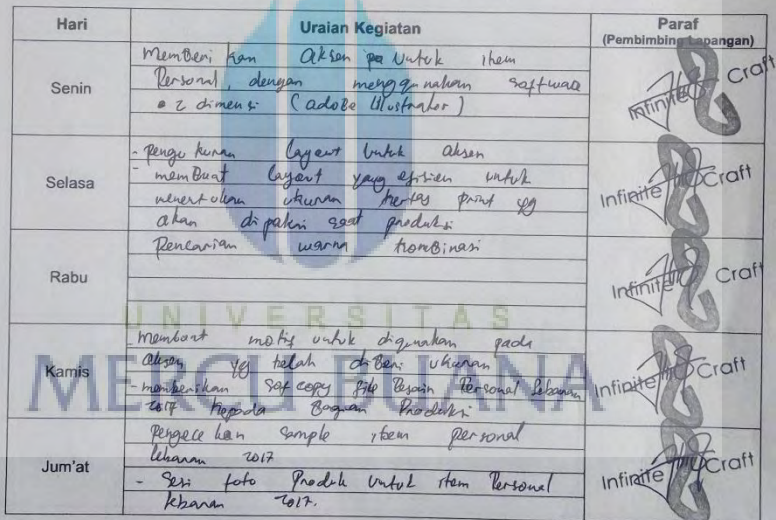 Hari Uraian Kegiatan Paraf
(Pembimbing Lapangan)
Senin
Memberi kan Aksen untuk item
Personal, dengan menggunakan software
2 dimensi (adobe Illustrator)
Infinite Craft
Selasa
- Pengukuran layout untuk aksen
- membuat layout yang efisien untuk
menentukan ukuran kertas print yg
akan dipakai saat produksi
Infinite Craft
Rabu
Pencarian warna kombinasi
Infinite Craft
UNIVERSITAS
MERCU BUANA
Kamis
- Membuat motif untuk digunakan pada
aksen yg telah diberi ukuran
- memberikan sof copy file Desain Personal Lebaran
2017 kepada Bagian Produksi
Infinite Craft
Jum'at
Pengecekan sample item personal
lebaran 2017
- Sesi foto Produk untuk item Personal
lebaran 2017.
Infinite Craft